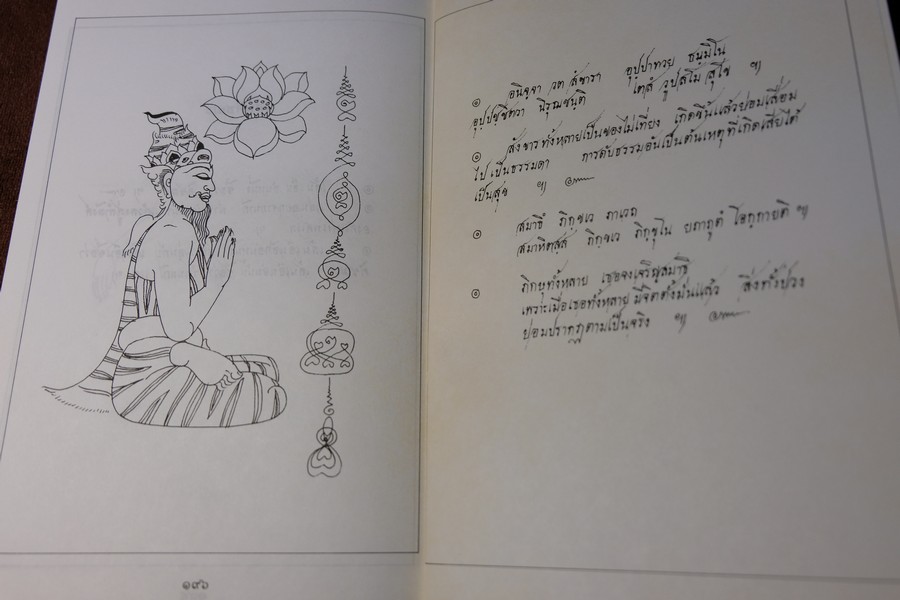 ๑๙๖
๏ อนิจฺจา วต สังขารา อุปฺปาทวย ธมฺมิโน
อุปฺปชฺชิตวา นิรุฌชนฺติ เตสํ วูปสโม สุโข ๚
๏ สังขารทั้งหลายเป็นของไม่เที่ยง เกิดขึ้นแล้วย่อมเสื่อม
ไปเป็นธรรมดา การดับธรรมอันเป็นต้นเหตุที่เกิดเสียได้
เป็นสุข ๚ ๛
๏ สมาธิํ ภิกฺขเว ภาเวถ
สมาหิตสฺส ภิกฺขเว ภิกฺขุโน ยถาภูตํ โอกฺกายติ ๚
๏ ภิกษุทั้งหลาย เธอจงเจริญสมาธิ
เพราะเมื่อเธอทั้งหลาย มีจิตตั้งมั่นแล้ว สิ่งทั้งปวง
ย่อมปรากฏตามเป็นจริง ๚ ๛